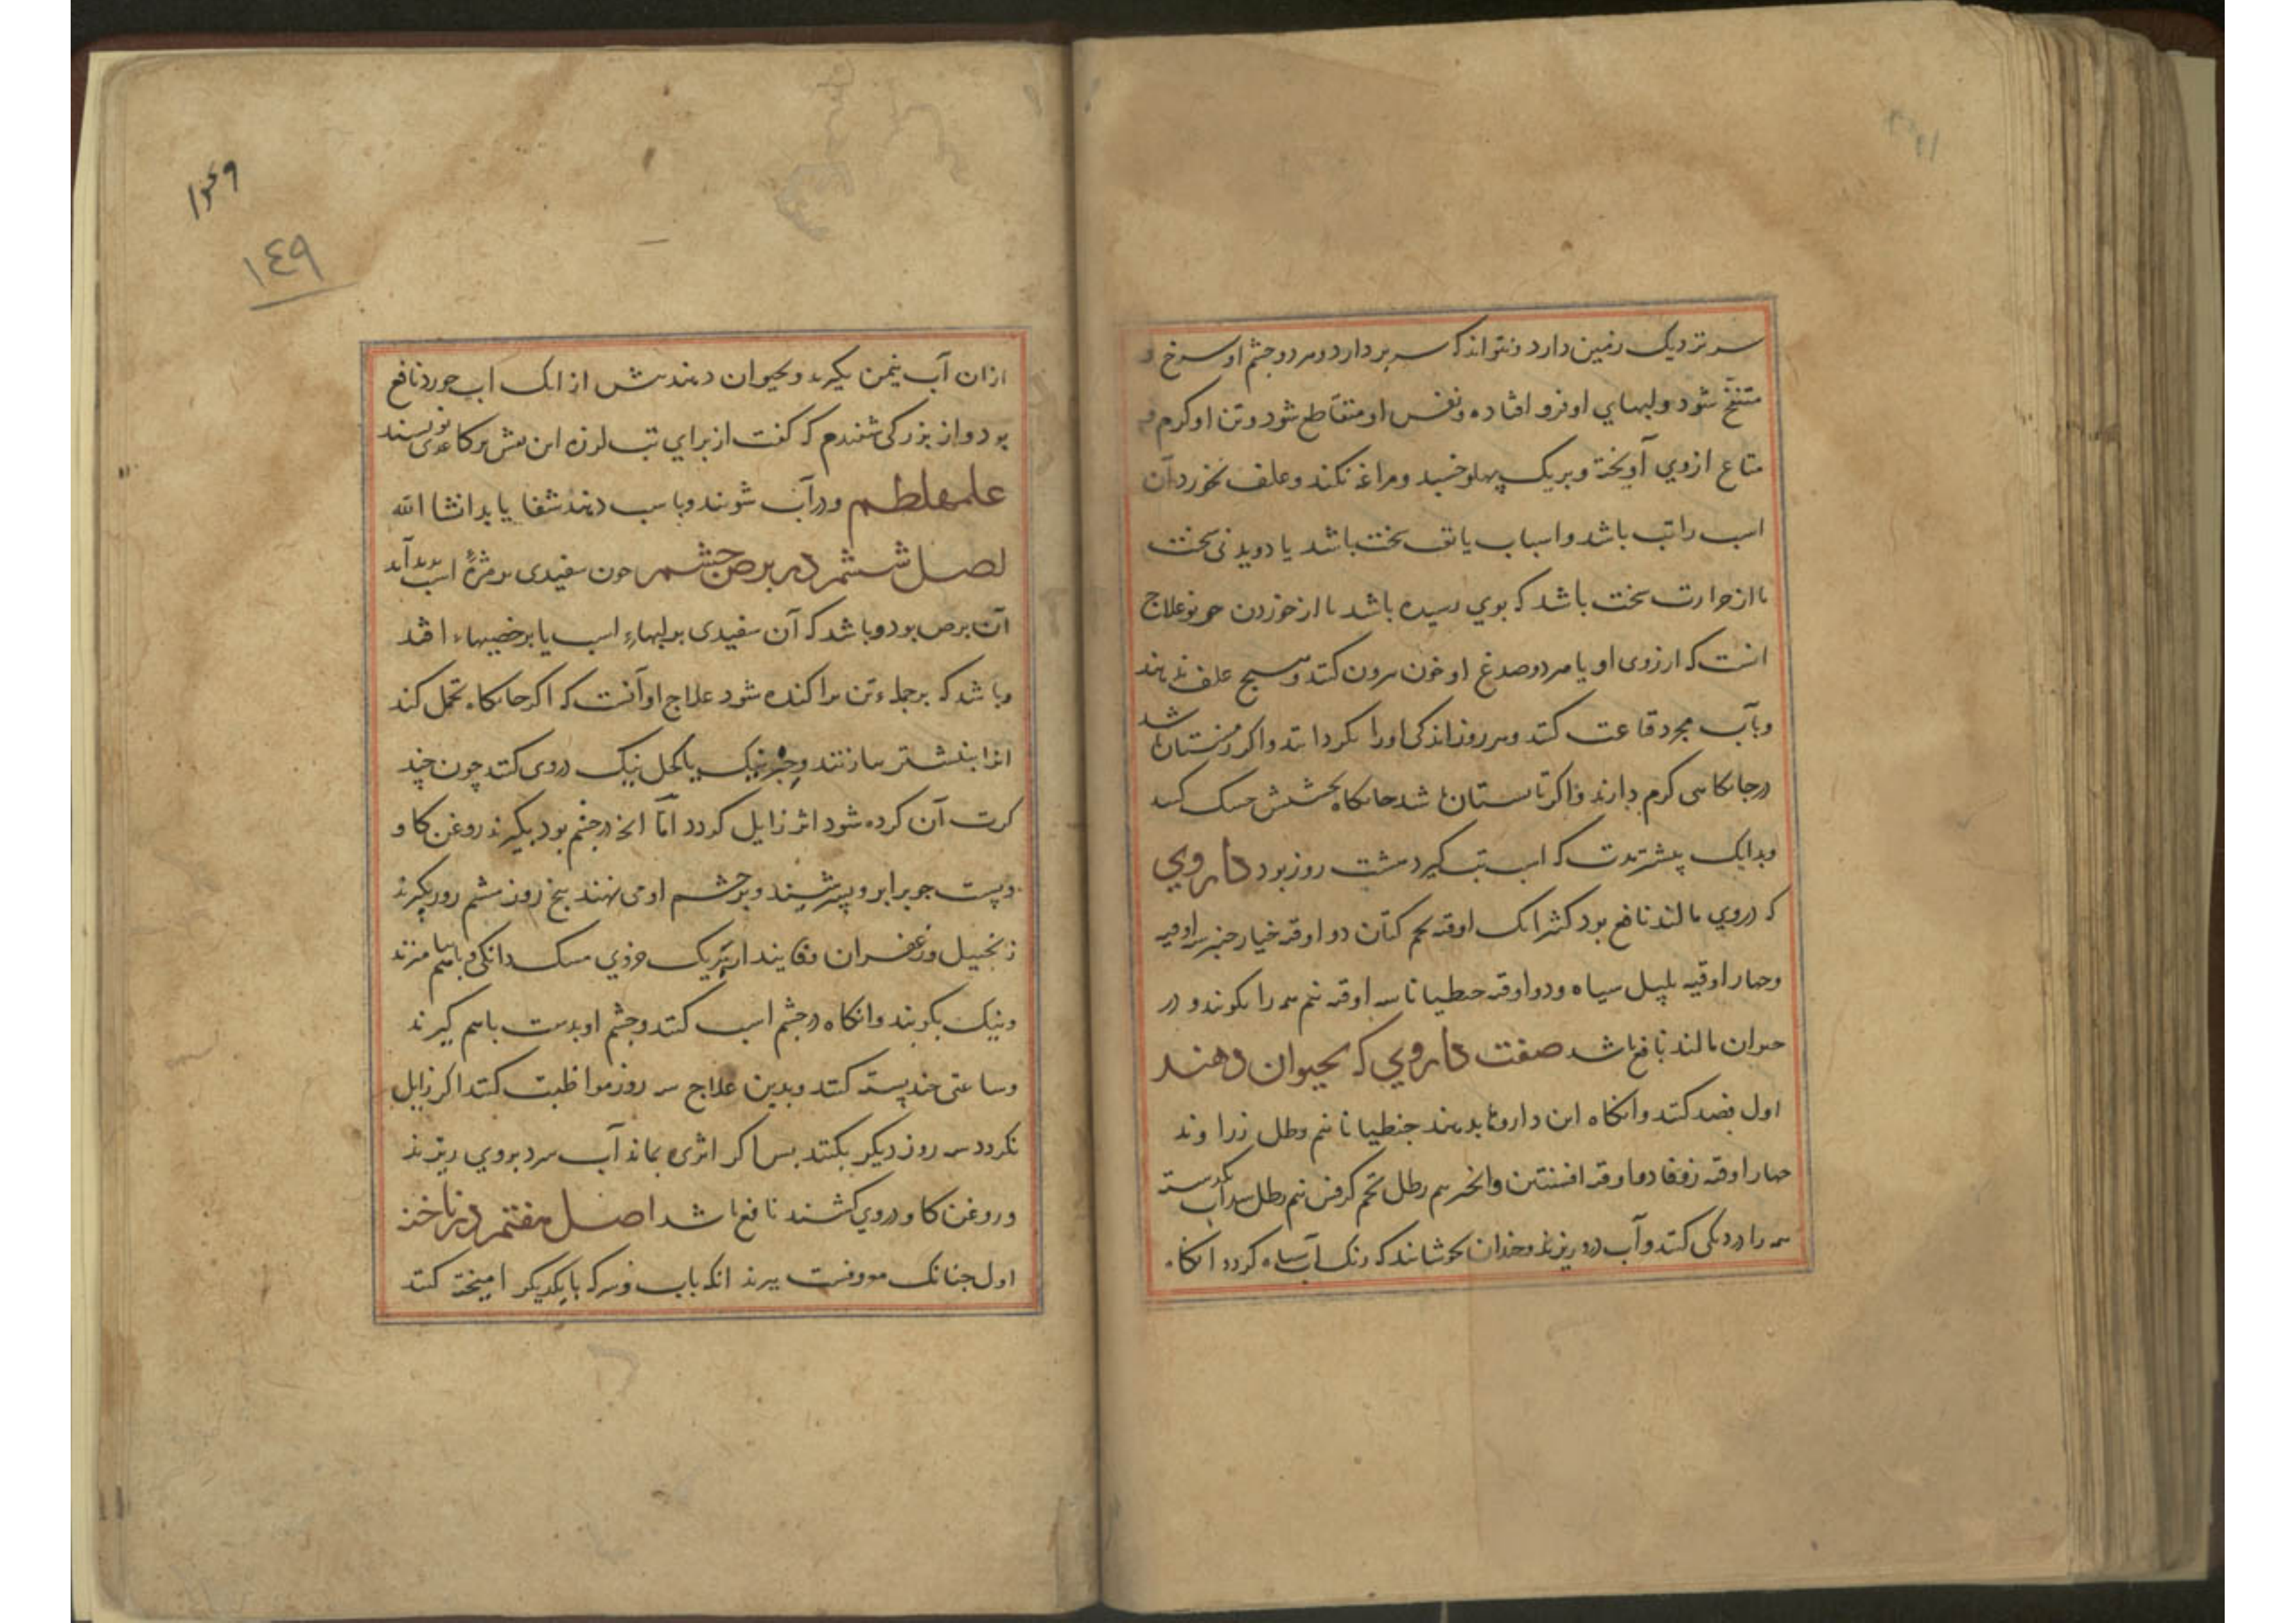 سر نزدیک زمین دارد و نتواند که سر بردارد و هر دو چشم او سرخ و
منتفخ شود و لبهای او فرو افتاده و نفس او متقاطع شود و تن او کرم و
متاع ازوی آویخته و بریک پهلو خسبد و مراغه نکند و علف نخورد آن
اسب را تب باشد و اسباب یا تف سخت باشد یا دویدنی سخت
یا از حرارت سخت باشد که بوی رسیده باشد یا از خوردن جو نو علاج
انست که از روی او یا هر دو صدغ او خون بیرون کنند و هیچ علف ندهند
و بآب مجرد قناعت کنند و هر روز اندکی او را بکردانند و اکر زمستان باشد
در جایکاهی کرم دارند و اکر تابستان باشد جایکاه خشکش خنک کنند
و بدانک پیشتر مدت که اسب تب کیرد هشت روز بود داروی
که در وی مالند نافع بود کثیرا یک اوقیه تخم کتان دو اوقیه خیارچنبر سه اوقیه
و چهار اوقیه پلپل سیاه و دو اوقیه جنطیانا سه اوقیه نیم همه را بکوبند و در
حیوان مالند نافع باشد صفت داروی که بحیوان دهند
اول فصد کنند و انکاه این داروها بدهند جنطیانا نیم رطل زراوند
چهار اوقیه زوفا دو اوقیه افسنتین وانخیر نیم رطل تخم کرفس نیم رطل سداب یکدسته
همه را در دیکی کنند و آب درو ریزند و چندان بجوشانند که رنک آب سیاه کردد انکاه
وعوا
١٤٩
ازان آب نیمن بکیرند و بحیوان دهند پیش از انک آب خورد نافع
بود و از بزرکی شنیدم که کفت از برای تب لرزه این نقش بر کاغذی نویسند
علمهلطم و در آب شویند و باسب دهند شفا یابد انشا الله
اصل ششم در برص چشم چون سفیدی بر مژۀ اسب پدید آید
آن برص بود و باشد که آن سفیدی بر لبهاء اسب یا بر خصیهاء افتد
و باشد که بر جملهء تن پراکنده شود علاج او آنست که اکر جایکاه تحمل کند
انرا بنشتر بیازنند و حبر نیک یا کحل نیک در وی کنند چون چند
کرت آن کرده شود اثر زایل کردد امّا انچ در چشم بود بکیرند روغن کاو
و پست جو برابر و بسرشند و بر چشم او می نهند پنج روز ششم روز بکیرند
زنجبیل و زعفران و فانیذ از هریک جزوی مسک دانکی و با هم بیامیزند
و نیک بکوبند و انکاه در چشم اسب کنند و چشم او بدست باهم کیرند
و ساعتی چند بسته کنند و بدین علاج سه روز مواظبت کنند اکر زایل
نکردد سه روز دیکر بکنند پس اکر اثری بماند آب سرد بروی ریزند
و روغن کاو در وی کشند نافع باشد اصل هفتم در ناخنه
اول چنانک معروفست ببرند انکه باب و سرکه بایکدیکر امیخته کنند